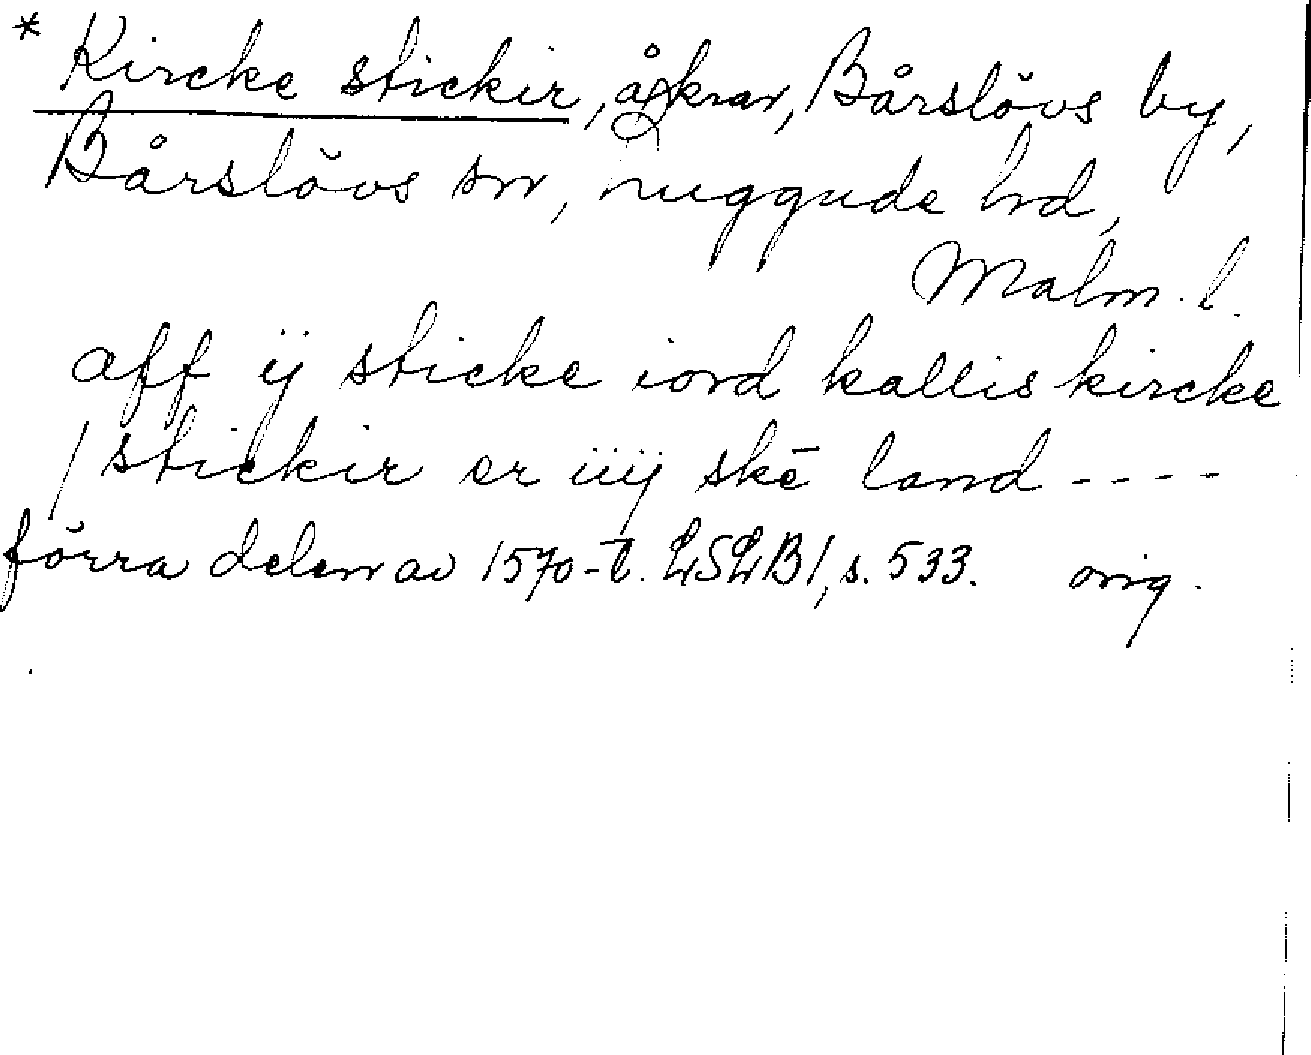 * Kircke stickir, åkrar, Bårslövs by,
Bårslövs sn, Luggude hd,
Malm. l.
aff ij sticke iord kallis kircke
/stickir er iiij skē land ----
förra delen av 1570-t. LSLB 1, s. 533. orig.